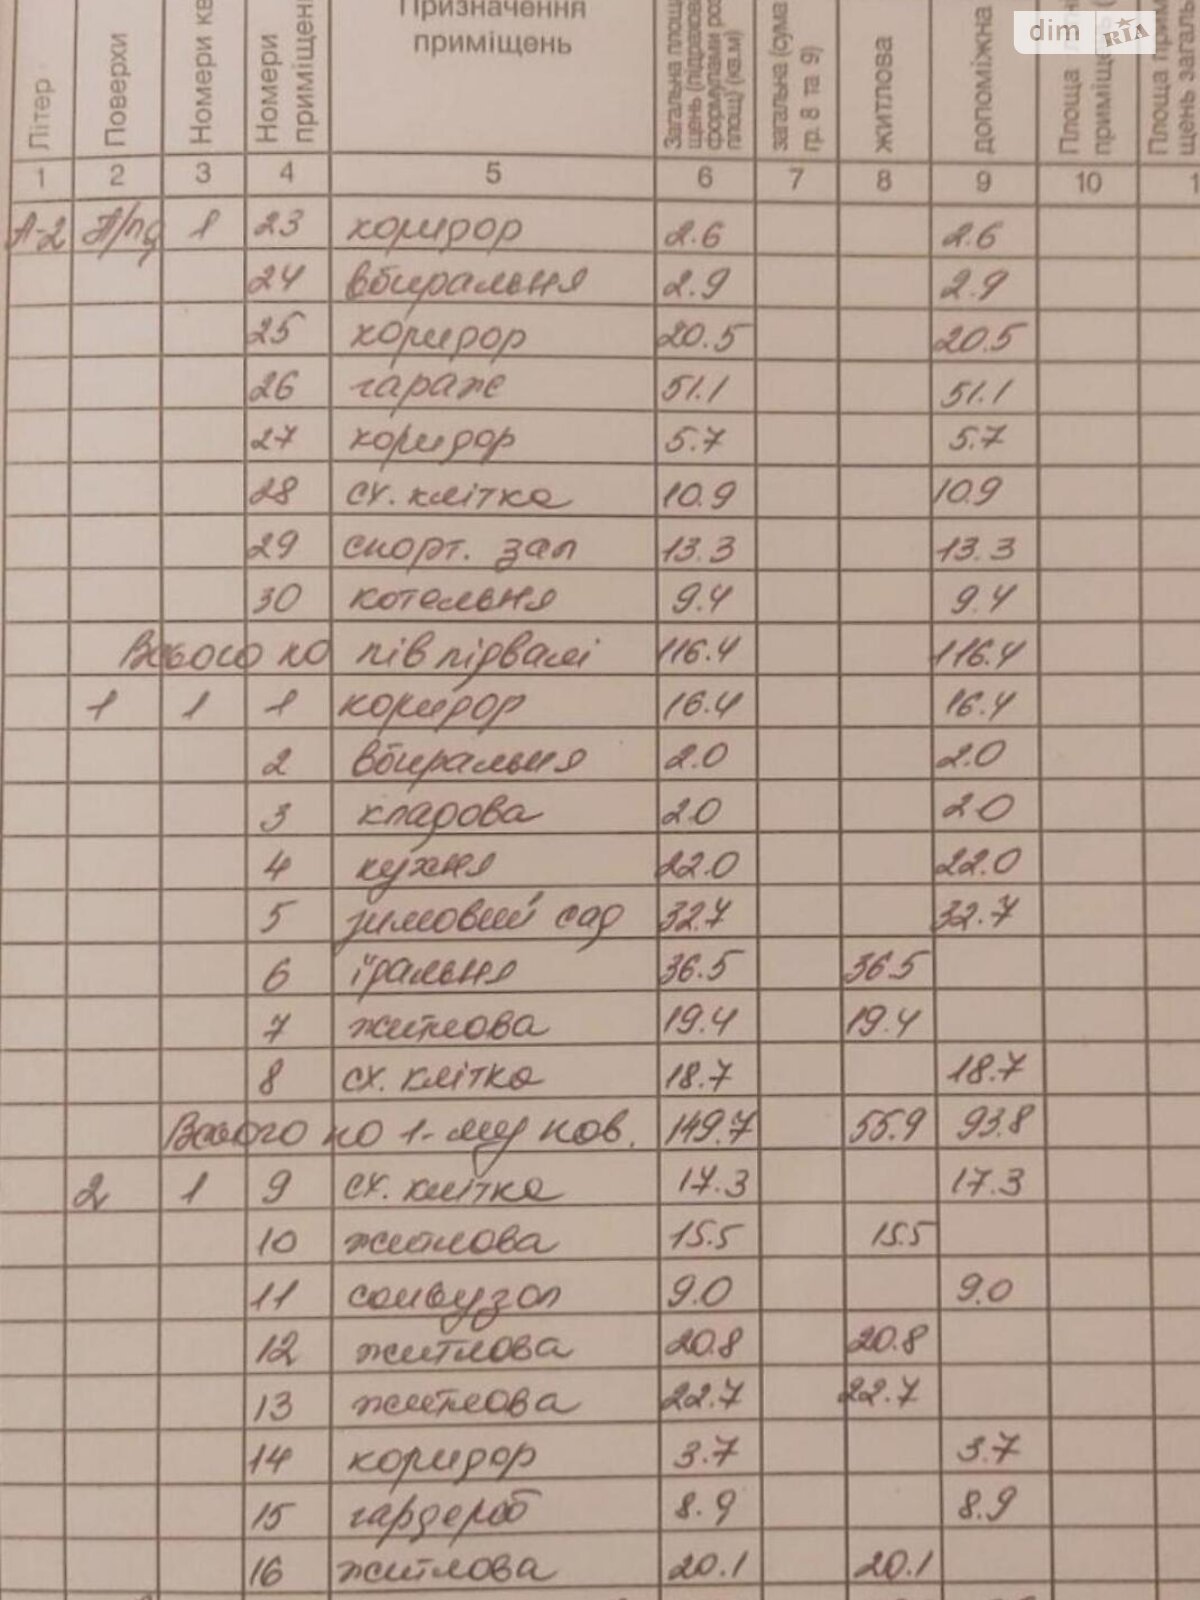 dim RIA
Літер
Поверхи
Номери кв
Номери приміщень
Призначення приміщень
Загальна площ
щень (підрахова
формулами роз
площ) (кв.м)
загальна (сума гр. 8 та 9)
житлова
допоміжна
Площа
приміщ
Площа прим
щень загаль
1 2 3 4 5 6 7 8 9 10 1
А-2 П/пд 1 23 коридор 2.6 2.6
24 вбиральня 2.9 2.9
25 коридор 20.5 20.5
26 гараж 51.1 51.1
27 коридор 5.7 5.7
28 сх. клітка 10.9 10.9
29 спорт. зал 13.3 13.3
30 котельня 9.4 9.4
Всього по пів підвалі 116.4 116.4
1 1 1 коридор 16.4 16.4
2 вбиральня 2.0 2.0
3 кладова 2.0 2.0
4 кухня 22.0 22.0
5 зимовий сад 32.7 32.7
6 їдальня 36.5 36.5
7 житлова 19.4 19.4
8 сх. клітка 18.7 18.7
Всього по 1-му пов. 149.7 55.9 93.8
2 1 9 сх. клітка 17.3 17.3
10 житлова 15.5 15.5
11 санвузол 9.0 9.0
12 житлова 20.8 20.8
13 житлова 22.7 22.7
14 коридор 3.7 3.7
15 гардероб 8.9 8.9
16 житлова 20.1 20.1